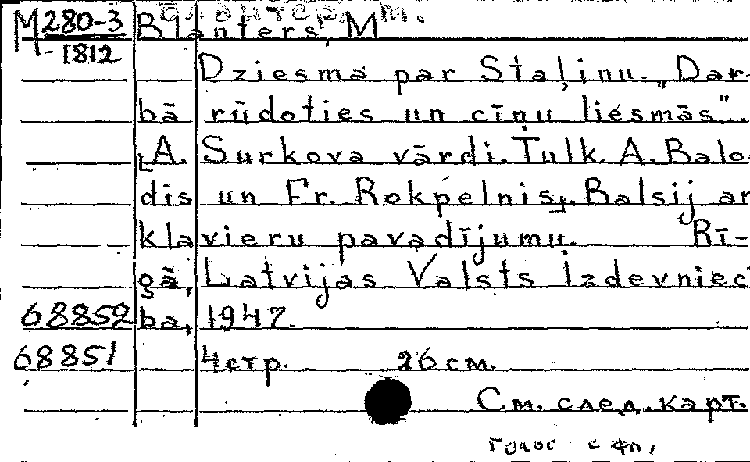 Блантер, М.
М 280-3 Blanters, M
1812
Dziesma par Staļinu. „Dar-
bā rūdoties un cīņu liesmās".
[A. Surkova vārdi. Tulk. A. Balo-
dis un Fr. Rokpelnis]. Balsij ar
klavieru pavadījumu. Rī-
gā, Latvijas Valsts izdevniecī
68852 ba, 1947.
68851 4 стр. 26 см.
См. след. карт.
голос с фп,